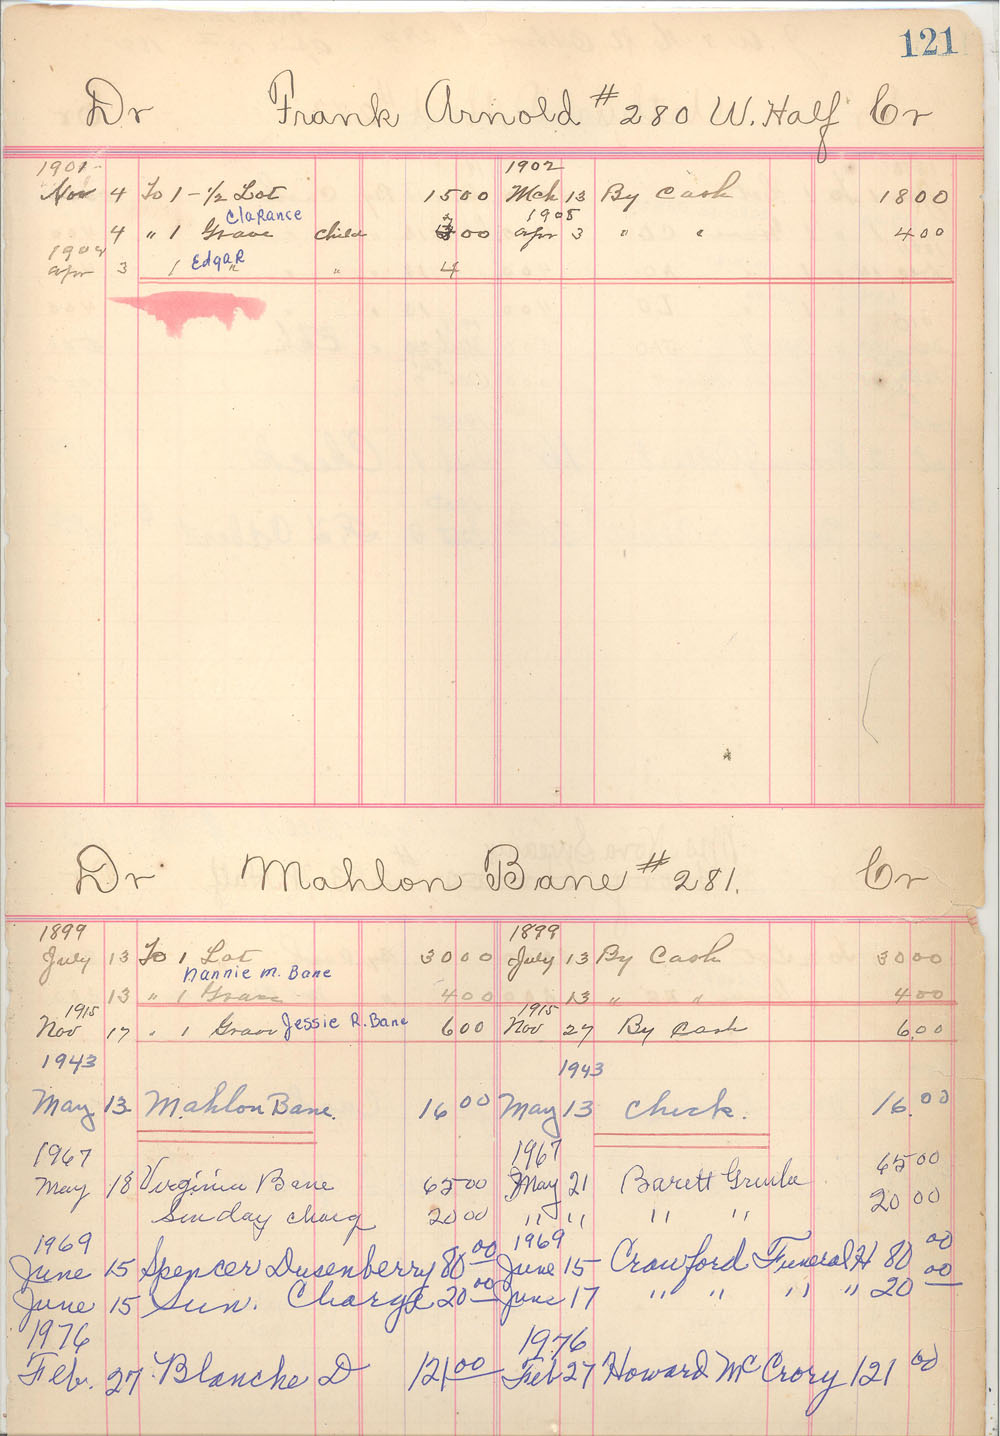 121
Dr Frank Arnold # 280 W. Half Cr
1901 1902
Nov 4 To 1 - 1/2 Lot 15 00 Mch 13 By Cash 18 00
Clarance 1905
4 " 1 Grave child 3 00 Apr 3 " " 4 00
Apr 3 1 Edgar " " 4
Dr Mahlon Bane # 281. Cr
1899 1899
July 13 To 1 Lot 30 00 July 13 By Cash 30 00
Nannie M. Bane
13 " 1 Grave 4 00 13 " " 4 00
1915 1915
Nov 17 " 1 Grave Jessie R. Bane 6 00 Nov 27 By Cash 6.00
1943 1943
May 13 Mahlon Bane. 16 00 May 13 check. 16.00
1967 1967
May 18 Virginia Bane 65 00 May 21 Barett 65 00
Sunday charg 20 00 " " " " 20 00
1969 1969
June 15 Spencer Dusenberry 80 00 June 15 Crawford Funeral H 80 00
June 15 Sun. Charge 20 00 June 17 " " " " 20 00
1976 1976
Feb. 27 Blanche D 121 00 Feb 27 Howard McCrory 121 00